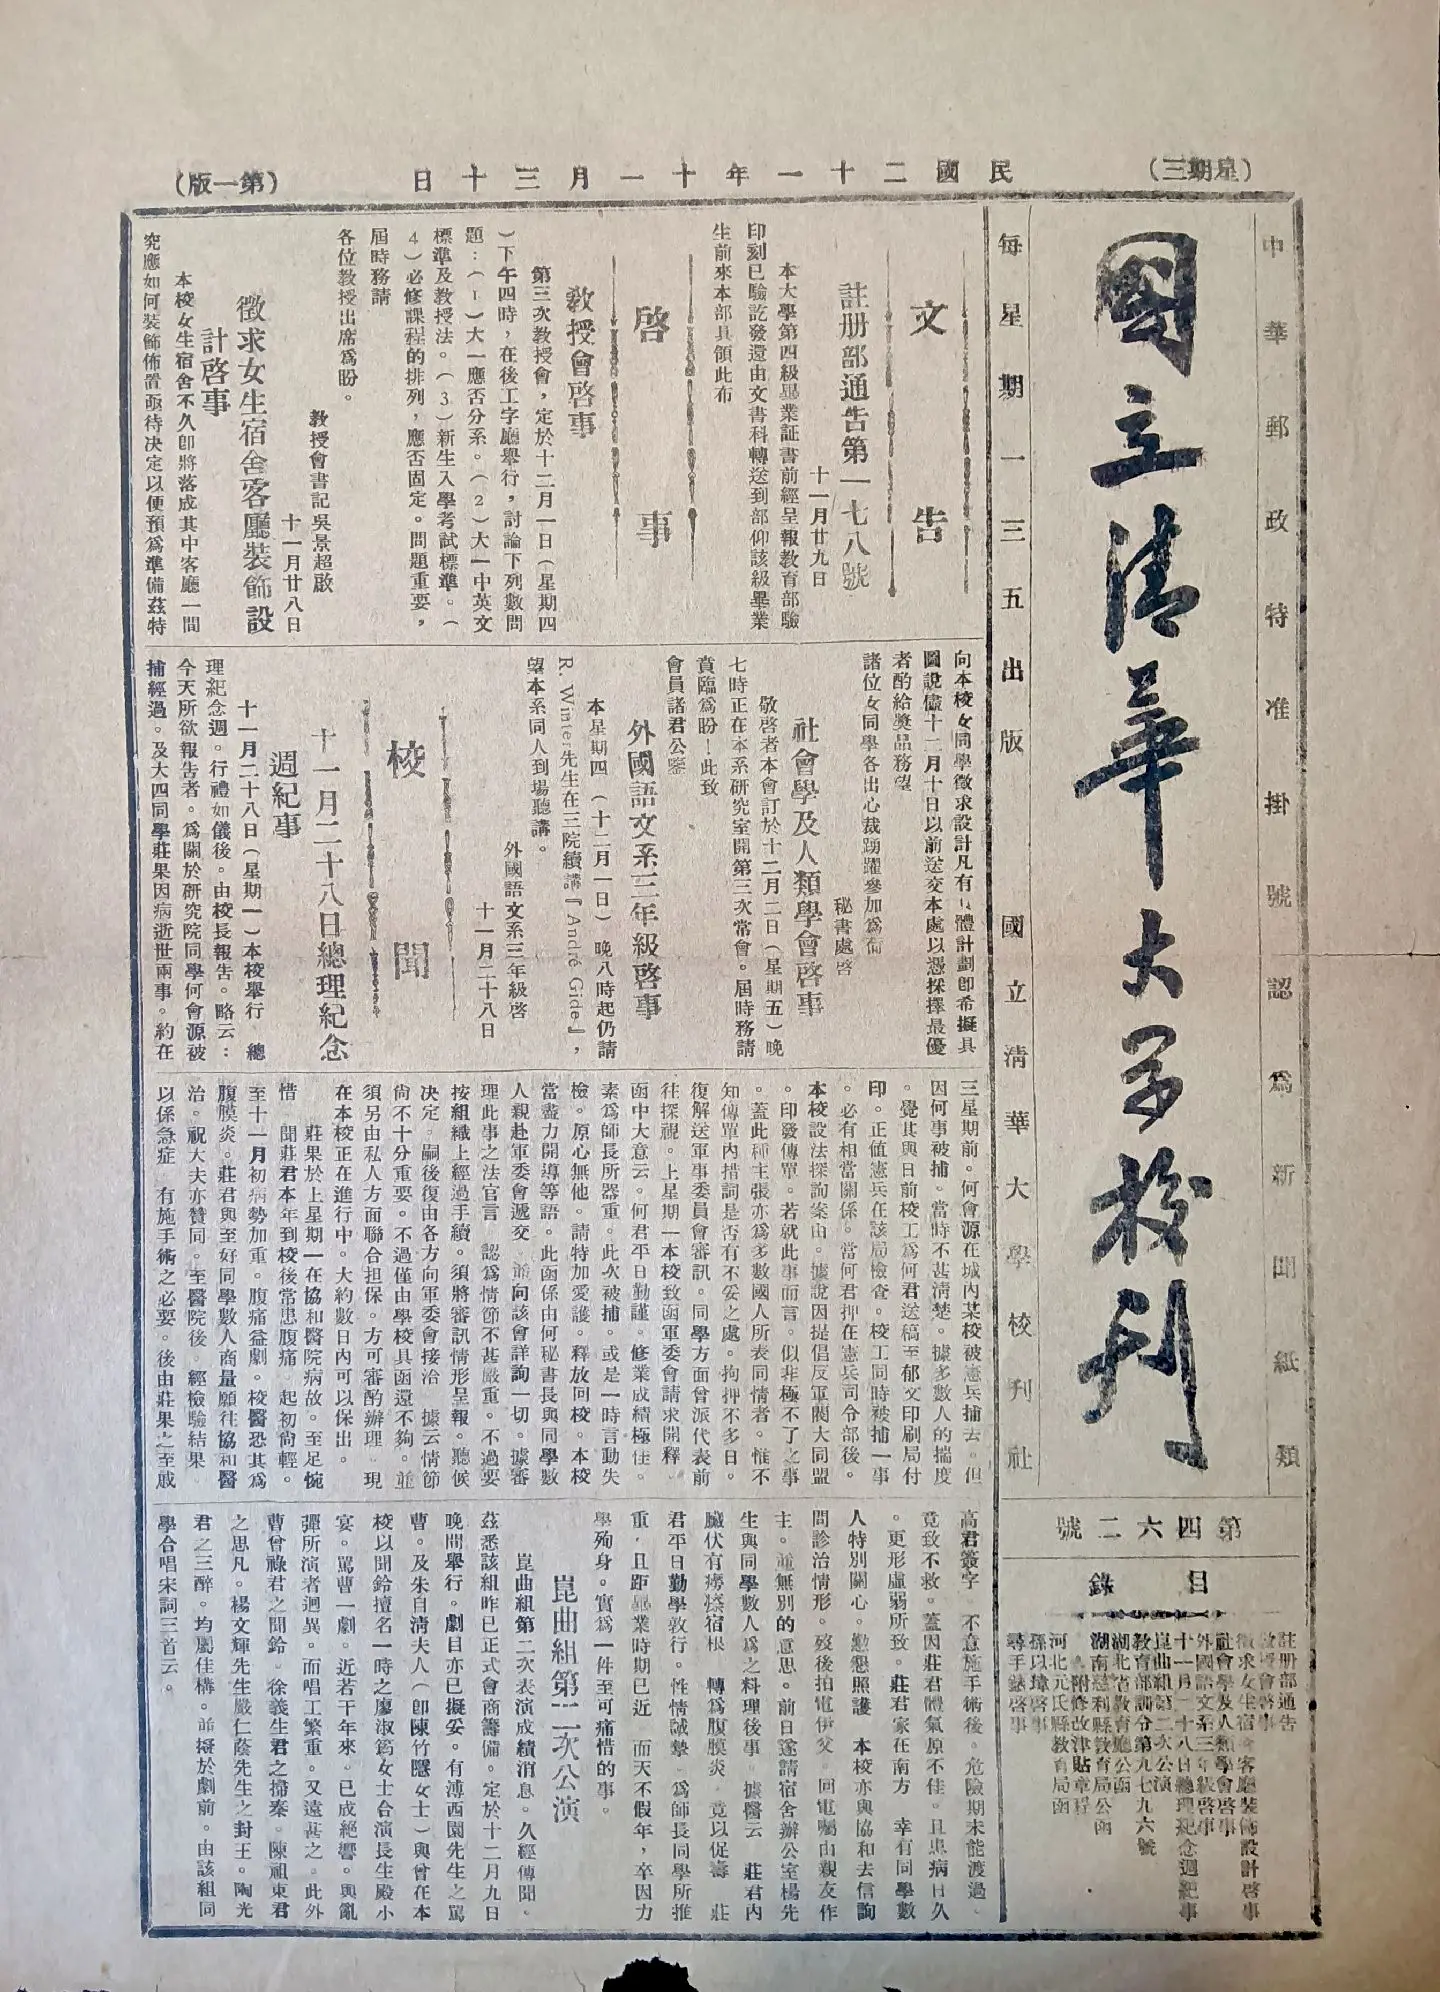 (星期三)
民國二十一年十一月三十日
(第一版)
中華郵政特准掛號認爲新聞紙類
國立清華大學校刊
每星期一三五出版 國立清華大學校刊社
第四六二號
目錄
註册部通告
教授會啓事
徵求女生宿舍客廳裝飾設計啓事
社會學及人類學會啓事
外國語文系三年級啓事
十一月二十八日總理紀念週紀事
崑曲組第二次公演
教育部訓令第九七九六號
湖北省教育廳公函
湖南慈利縣教育局公函
附修改津貼章程
河北元氏縣教育局函
孫以瑋啓事
尋手錶啓事
文告
註册部通告第一七八號
十一月廿九日
本大學第四級畢業証書前經呈報教育部驗
印刻已驗訖發還由文書科轉送到部仰該級畢業
生前來本部具領此布
啓事
敎授會啓事
第三次教授會，定於十二月一日(星期四
)下午四時，在後工字廳舉行，討論下列數問
題：(1)大一應否分系。(2)大一中英文
標準及教授法。(3)新生入學考試標準。(
4)必修課程的排列，應否固定。問題重要，
屆時務請
各位教授出席爲盼。
敎授會書記吳景超啟
十一月廿八日
徵求女生宿舍客廳裝飾設
計啓事
本校女生宿舍不久卽將落成其中客廳一間
究應如何裝飾佈置亟待决定以便預爲準備茲特
向本校女同學徵求設計凡有具體計劃卽希擬具
圖說儘十二月十日以前送交本處以憑採擇最優
者酌給獎品務望
諸位女同學各出心裁踴躍參加爲荷
秘書處啓
社會學及人類學會啓事
敬啓者本會訂於十二月二日(星期五)晚
七時正在本系研究室開第三次常會。屆時務請
賁臨爲盼！此致
會員諸君公鑒
外國語文系三年級啓事
本星期四 (十二月一日)晚八時起仍請
R. Winter先生在三院續講『André Gide』，
望本系同人到場聽講。
外國語文系三年級啓
十一月二十八日
校聞
十一月二十八日總理紀念
週紀事
十一月二十八日(星期一)本校舉行 總
理紀念週。行禮如儀後。由校長報告。略云：
今天所欲報告者。爲關於研究院同學何會源被
捕經過。及大四同學莊果因病逝世兩事。約在
三星期前。何會源在城內某校被憲兵捕去。但
因何事被捕。當時不甚淸楚。據多數人的揣度
。覺其與日前校工爲何君送稿至郁文印刷局付
印。正值憲兵在該局檢查。校工同時被捕一事
。必有相當關係。當何君押在憲兵司令部後。
本校設法探詢案由。據說因提倡反軍閥大同盟
。印發傳單。若就此事而言。似非極不了之事
。蓋此種主張亦爲多數國人所表同情者。惟不
知傳單內措詞是否有不妥之處。拘押不多日。
復解送軍事委員會審訊。同學方面曾派代表前
往探視。上星期一本校致函軍委會請求開釋。
函中大意云。何君平日勤謹。修業成績極佳。
素爲師長所器重。此次被捕。或是一時言動失
檢。原心無他。請特加愛護。釋放回校。本校
當盡力開導等語。此函係由何秘書長與同學數
人親赴軍委會遞交。並向該會詳詢一切。據審
理此事之法官言 認爲情節不甚嚴重。不過要
按組織上經過手續。須將審訊情形呈報。聽候
决定。嗣後復由各方向軍委會接洽 據云情節
尙不十分重要。不過僅由學校具函還不夠。並
須另由私人方面聯合担保。方可審酌辦理 現
在本校正在進行中。大約數日內可以保出。
莊果於上星期一在協和醫院病故。至足惋
惜 聞莊君本年到校後常患腹痛 起初尙輕。
至十一月初病勢加重。腹痛益劇。校醫恐其爲
腹膜炎。莊君與至好同學數人商量願往協和醫
治。祝大夫亦贊同。至醫院後。經檢驗結果
以係急症 有施手術之必要。後由莊果之至戚
高君簽字 不意施手術後。危險期未能渡過。
竟致不救。蓋因莊君體氣原不佳。且患病日久
。更形虛弱所致。莊君家在南方 幸有同學數
人特別關心。懃懇照護 本校亦與協和去信詢
問診治情形。歿後拍電伊父。回電囑由親友作
主。並無別的意思。前日遂請宿舍辦公室楊先
生與同學數人爲之料理後事 據醫云 莊君內
臟伏有癆瘵宿根 轉爲腹膜炎 竟以促壽 莊
君平日勤學敦行。性情誠摯 爲師長同學所推
重，且距畢業時期已近 而天不假年，卒因力
學殉身。實爲一件至可痛惜的事。
崑曲組第二次公演
崑曲組第二次表演成績消息。久經傳聞。
茲悉該組昨已正式會商籌備。定於十二月九日
晚間舉行。劇目亦已擬妥。有溥西園先生之罵
曹。及朱自淸夫人(卽陳竹隱女士)與曾在本
校以聞鈴擅名一時之廖淑筠女士合演長生殿小
宴。罵曹一劇。近若干年來。已成絕響。與亂
彈所演者迥異。而唱工繁重。又遠甚之。此外
曹曾祿君之聞鈴。徐義生君之掃秦。陳祖東君
之思凡。楊文輝先生嚴仁蔭先生之封王。陶光
君之三醉。均屬佳構。並擬於劇前。由該組同
學合唱宋詞三首云。